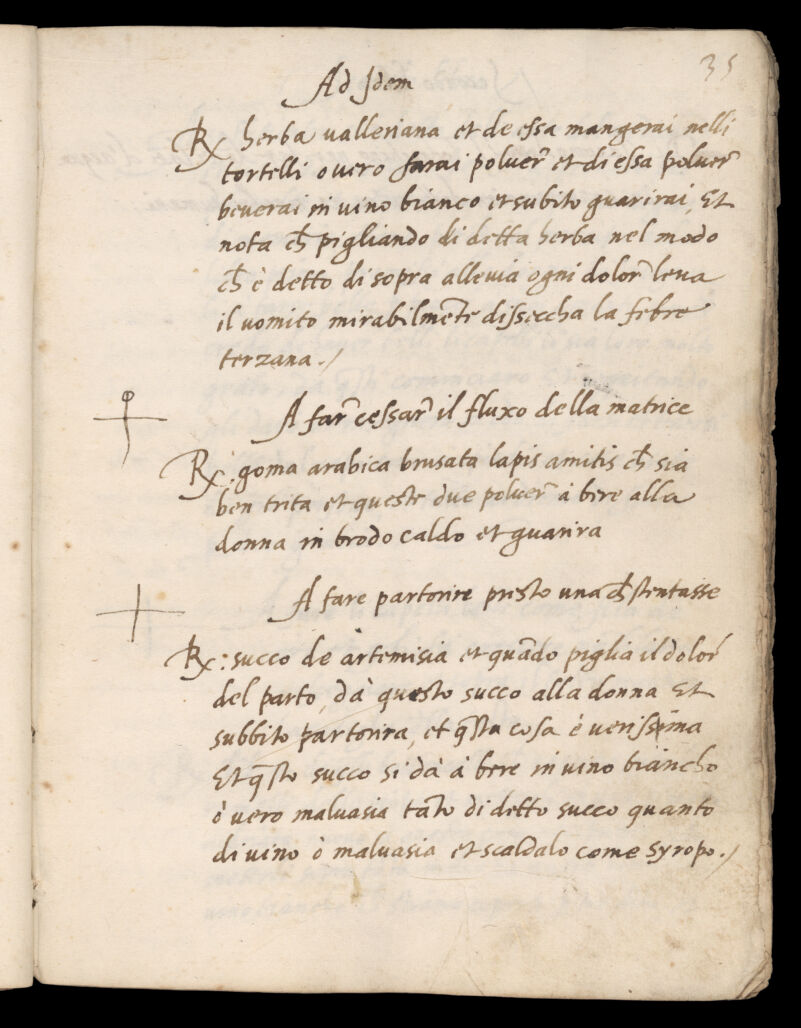 35
Ad Jdem
Rx herba valleriana et de essa mangerai nelli
tortelli overo farai polver̃ et di essa polver̃
beverai in vino bianco et subito guarirai, Et
nota ch̃ pigliando di detta herba nel modo
ch̃ è detto di sopra allevia ogni dolor̃ leva
il vomito mirabilmẽte disseccha la febre
terzana ./
A far̃ cessar̃ il fluxo della matrice
Rx: goma arabica brusata lapis amitis ch̃ sia
ben trita et queste due polver̃ à bere alla
donna in brodo caldo et guarira
A fare partorire presto una ch̃ stentasse
Rx: succo de artemisia et quãdo piglia il dolor̃
del parto, dà questo succo alla donna Et
subbito partorira, et q̃sta cosa è verissima
Et q̃sto succo si dà à bere in vino biancho
ò vero malvasia tãto di detto succo quanto
di vino ò malvasia et scaldalo come syropo ./